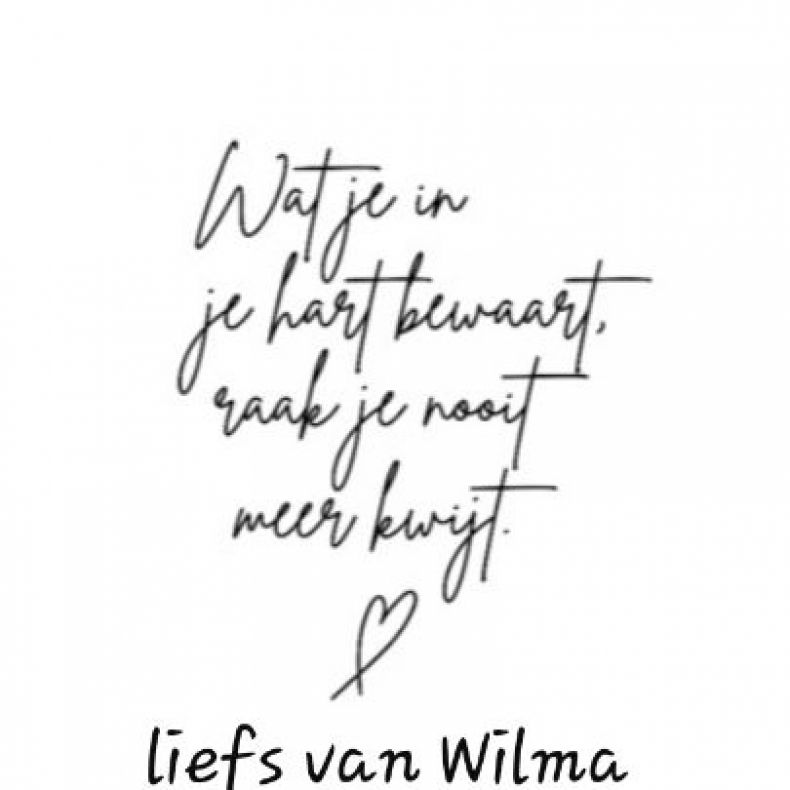 Wat je in
je hart bewaart,
raak je nooit
meer kwijt.
liefs van Wilma